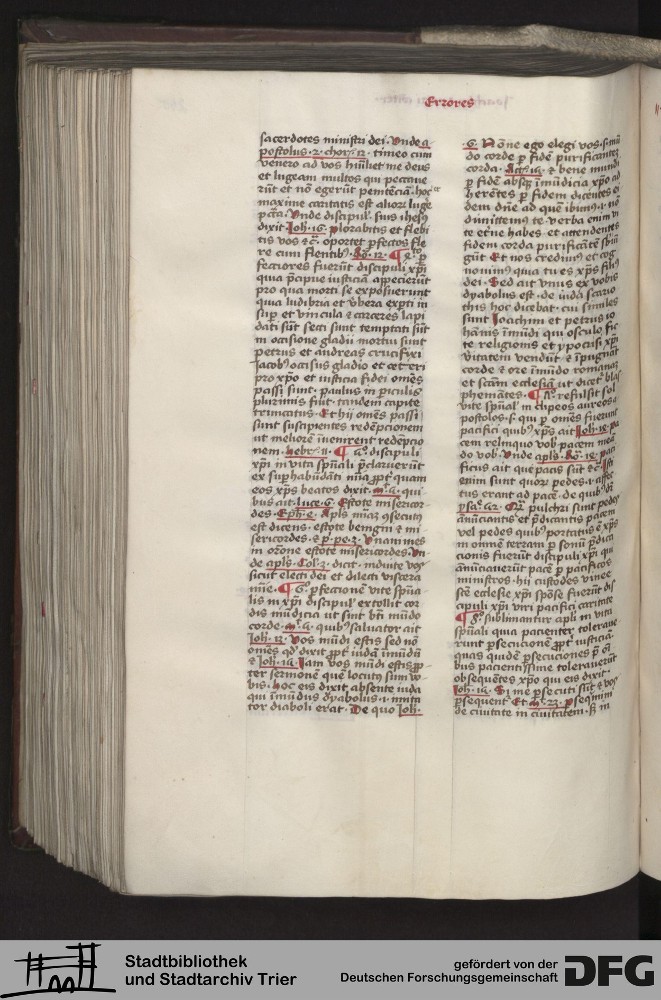 Errores
sacerdotes ministri dei · Unde a
postolus · 2 · chor · 12 · timeo cum
venero ad vos hūiliet me deus
et lugeam multos qui peccave
rūt et nō egerūt penitēciā · hoc
maxime caritatis est alior luge
pctā · Unde discipul suis ihesus
dixit Joh · 16 · plorabitis et flebi
tis vos &c̄ · oportet pfectos fle
re cum flentib · Ro · 12 · ¶
fecciores fuerūt discipuli xp̄i
quia p̄cipue iusticiā appecierūt
pro qua morti se exposuerunt
quia ludibria et verbera expti in
sup et vincula & carceres lapi
dati sūt secti sunt temptati sūt
in occisione gladii mortui sunt
petrus et andreas crucifixi
Jacob occisus gladio et ceteri
pro xpo et iusticia fidei omēs
passi sunt · paulus in piculis
plurimis fuit · tandem capite
truncatus · Et hii omēs passi
sunt suscipientes redēpcionem
ut meliorē īuenirent redēpcio
nem · hebr · 11 · ¶ discipuli
xp̄i in vita spūali p̄claruerūt
ex suphabūdāti mīa quam
eos xps beatos dixit · mt · 5 · qui
bus ait · luce · 6 · Estote misericor
des · Eph · Apls
est dicens · estote benigni & mi
sericordes · & p · pe · 3 · Unanimes
in orōne estote misericordes · Un
de apls · Col · 3 · dicit · induite vos
sicut electi dei et dilecti viscera
mīe · ¶ pfeccionē vite spūa
lis in xp̄i discipul extollit cor
dis mūdicia ut sint bn̄ mūdo
corde · mt · 5 · quib salvator ait
Joh · 13 · Vos mūdi estis sed nō
omēs qd dixit ppt iudā īmūdū
& Joh · 15 · Iam vos mūdi estis pp
ter sermonē quē locut sum vo
bis · hoc eis dixit absente iuda
qui īmūdus dyabolus · i · imita
tor diaboli erat · De quo Joh ·
· 6 · Nōne ego elegi vos · s · mū
do corde p fidē purificantes
corda · Act · 15 · & bene mundi
p fidē absq īmūdicia xpo ad
herētes p fidem dicētes ei
dem dn̄e ad quē ibimus · i · nō
dimittemus te verba enim vi
te etne habes · et attendentes
fidem corda purificātē
gūt Et nos credim et cog
novim quia tu es xps filius
dei · Sed ait unus ex vobis
dyabolus est · de iuda scario
this hoc dicebat · cui similes
sunt Joachim et petrus io
hānis īmūdi qui osculo fic
te religionis et ypocrisi xpi
vitatem vendūt & īpugnāt
corde & ore īmūdo romanam
et scām ecclesiā ut dicet blas
phemātes · ¶ refulsit sol
vite spūal in clipeos aureos a
postolos · s · qui p omēs fuerunt
pacifici quib xps ait Joh · 14 · pa
cem relinquo vob pacem meā
do vob · Unde apls · Ro · 14 · pa
ficus ait que pacis sūt &c̄
enim sunt quor pedes · affec
tus erant ad pacē · de quib
ysa · 52 · pulchri sunt pedes
anūciantis et p̄dicantis pacem
vel pedes quib portatus ē xps
in omnē terram p sonū p̄dica
cionis fuerūt discipuli xpi qui
anūciaverūt pacē p pacificos
ministros · hii custodes vinee
scē ecclesie xpi sponse fuerūt dis
cipuli xpi viri pacifici caritate
¶ sublimantur apli in vita
spūali quia pacienter tolerave
runt psecucionē ppt iusticiā ·
quas quidē psecuciones p oi
bus pacientissime toleraverūt
obsequētes xpo qui eis dixit ·
Joh · 15 · Si me psecuti sūt & vos
psequent · Et mt · 23 · psequimini
de civitate in civitatem · in
Stadtbibliothek
und Stadtarchiv Trier
gefördert von der
Deutschen Forschungsgemeinschaft
DFG